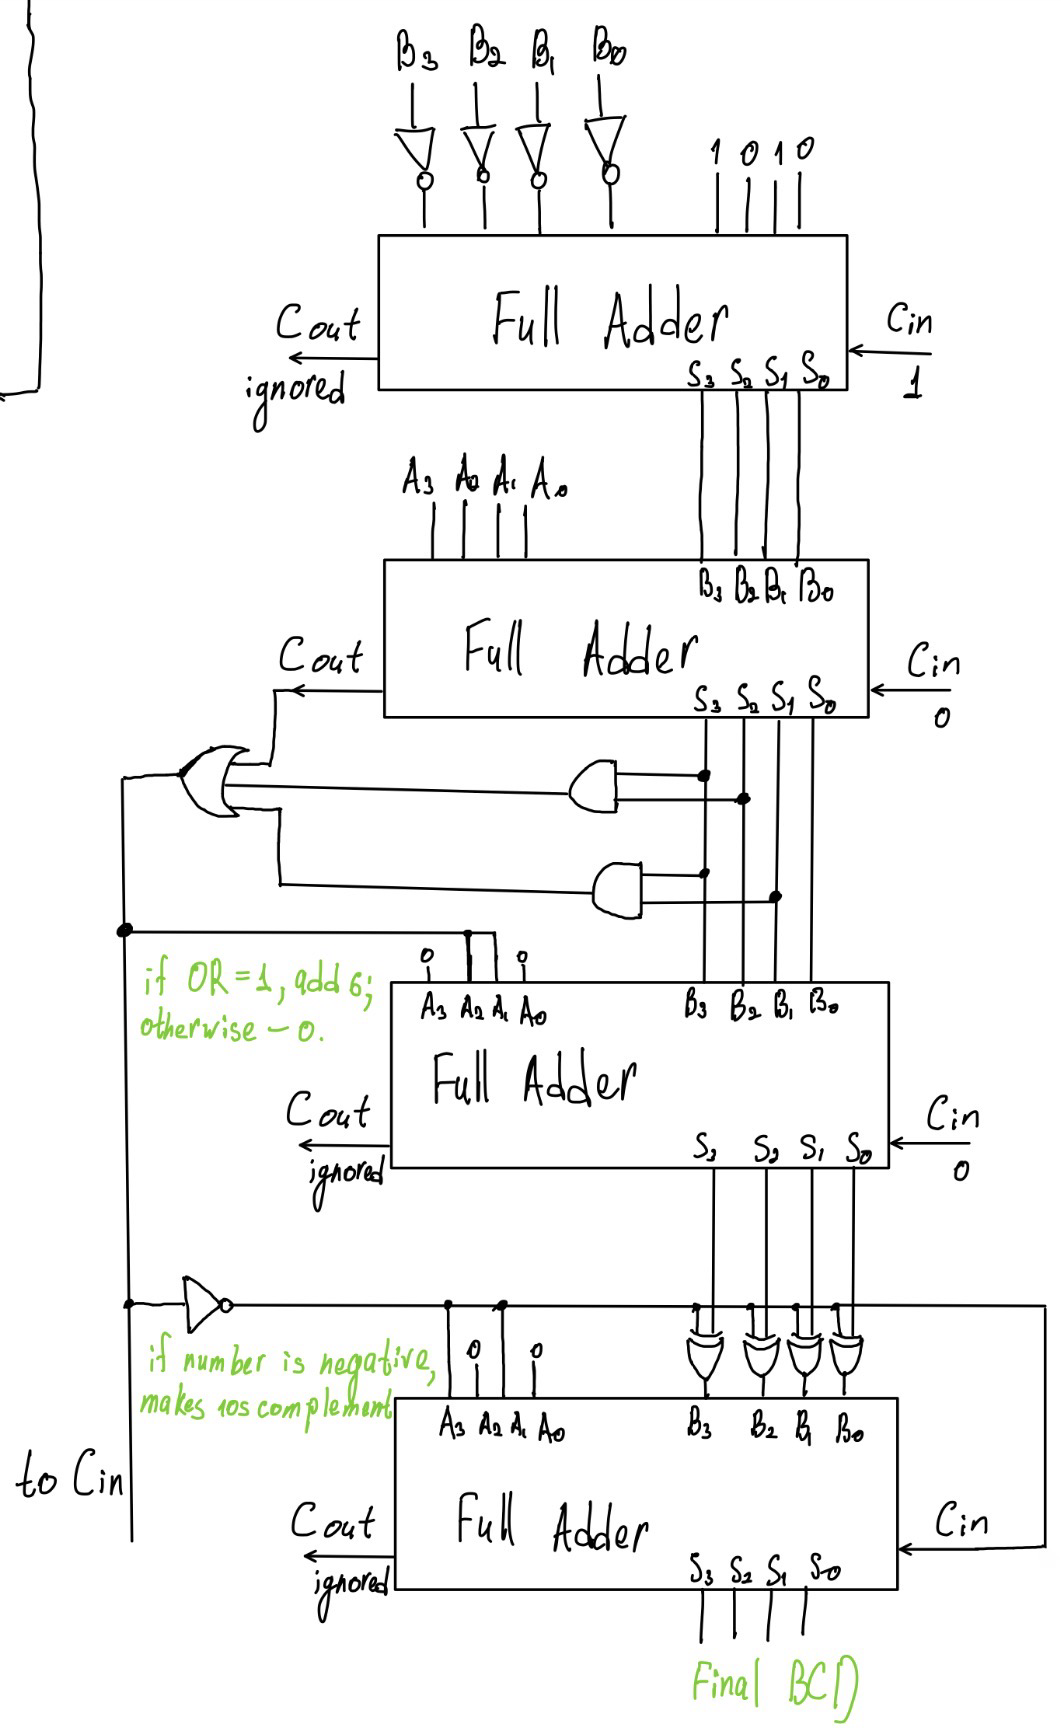 B3 B2 B1 B0
1 0 1 0
Full Adder
Cout
ignored
Cin
1
S3 S2 S1 S0
A3 A2 A1 A0
B3 B2 B1 B0
Full Adder
Cout
Cin
0
S3 S2 S1 S0
if OR = 1, add 6;
otherwise – 0.
0 0
A3 A2 A1 A0
B3 B2 B1 B0
Full Adder
Cout
ignored
Cin
0
S3 S2 S1 S0
if number is negative,
makes 10s complement
0 0
A3 A2 A1 A0
B3 B2 B1 B0
to Cin
Full Adder
Cout
ignored
Cin
S3 S2 S1 S0
Final BCD